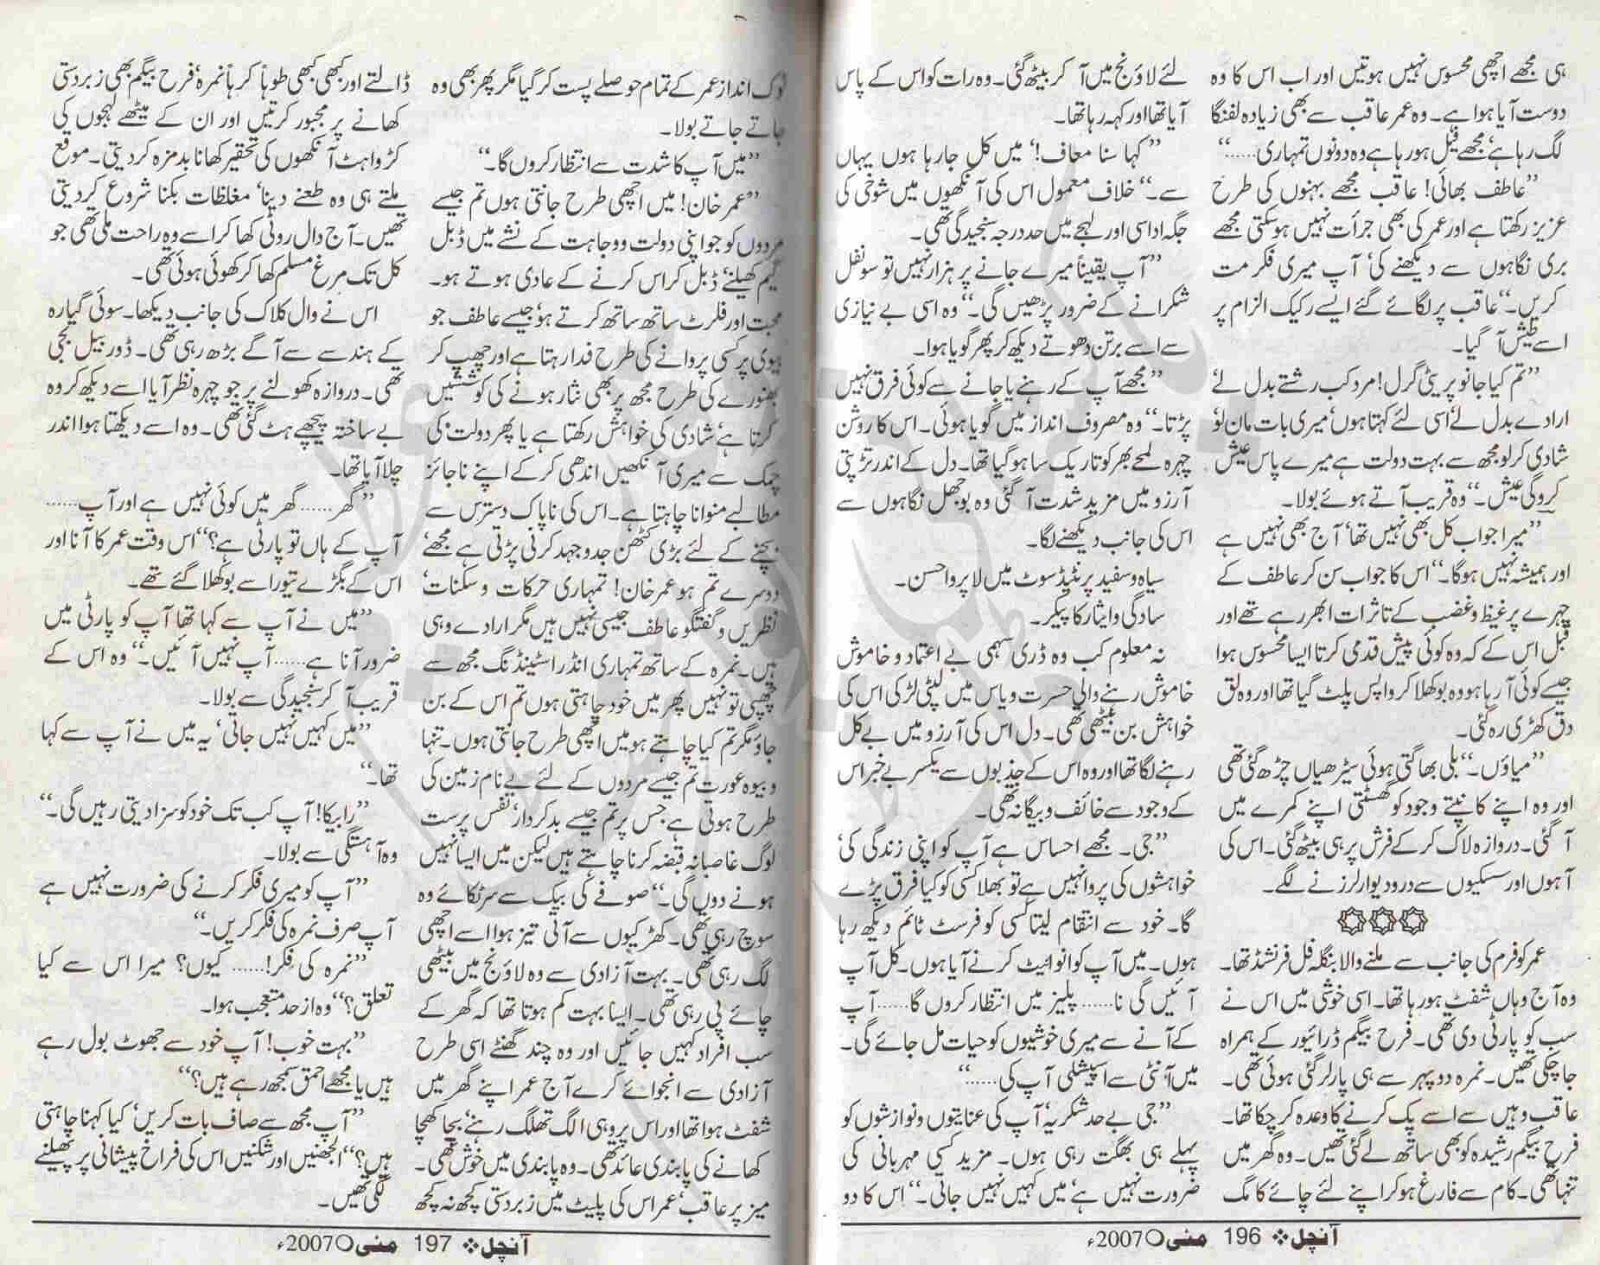 ہی مجھے اچھی محسوس نہیں ہوتیں اور اب اس کا وہ
دوست آیا ہوا ہے۔ وہ عمر عاقب سے بھی زیادہ لفنگا
لگ رہا ہے، مجھے فیل ہو رہا ہے وہ دونوں تمہاری......‘‘
’’عاطف بھائی! عاقب مجھے بہنوں کی طرح
عزیز رکھتا ہے اور عمر کی بھی جرأت نہیں ہو سکتی مجھے
بری نگاہوں سے دیکھنے کی‘ آپ میری فکر مت
کریں۔‘‘ عاقب پر لگائے گئے ایسے رکیک الزام پر
اسے طیش آ گیا۔
’’تم کیا جانو پریٹی گرل! مرد کب رشتے بدل لے‘
ارادے بدل لے‘ اسی لئے کہتا ہوں‘ میری بات مان لو‘
شادی کر لو مجھ سے بہت دولت ہے میرے پاس عیش
کرو گی عیش۔‘‘ وہ قریب آتے ہوئے بولا۔
’’میرا جواب کل بھی نہیں تھا‘ آج بھی نہیں ہے
اور ہمیشہ نہیں ہوگا۔‘‘ اس کا جواب سن کر عاطف کے
چہرے پر غیظ و غضب کے تاثرات ابھر رہے تھے اور
قبل اس کے کہ وہ کوئی پیش قدمی کرتا ایسا محسوس ہوا
جیسے کوئی آ رہا ہو وہ بوکھلا کر واپس پلٹ گیا تھا اور وہ لق
دق کھڑی رہ گئی۔
’’میاؤں۔‘‘ بلی بھاگتی ہوئی سیڑھیاں چڑھ گئی تھی
اور وہ اپنے کانپتے وجود کو گھسٹتی اپنے کمرے میں
آ گئی۔ دروازہ لاک کر کے فرش پر ہی بیٹھ گئی۔ اس کی
آہوں اور سسکیوں سے در و دیوار لرزنے لگے۔
عمر کو فرم کی جانب سے ملنے والا بنگلہ فل فرنشڈ تھا۔
وہ آج وہاں شفٹ ہو رہا تھا۔ اسی خوشی میں اس نے
سب کو پارٹی دی تھی۔ فرح بیگم ڈرائیور کے ہمراہ
جا چکی تھیں۔ نمرہ دوپہر سے ہی پارلر گئی ہوئی تھی۔
عاقب وہیں سے اسے پک کرنے کا وعدہ کر چکا تھا۔
فرح بیگم رشیدہ کو بھی ساتھ لے گئی تھیں۔ وہ گھر میں
تنہا تھی۔ کام سے فارغ ہو کر اپنے لئے چائے کا مگ
لئے لاؤنج میں آ کر بیٹھ گئی۔ وہ رات کو اس کے پاس
آیا تھا اور کہہ رہا تھا۔
’’کہا سنا معاف!‘ میں کل جا رہا ہوں یہاں
سے۔‘‘ خلاف معمول اس کی آنکھوں میں شوخی کی
جگہ اداسی اور لہجے میں حد درجہ سنجیدگی تھی۔
’’آپ یقیناً میرے جانے پر ہزار نہیں تو سو نفل
شکرانے کے ضرور پڑھیں گی۔‘‘ وہ اسی بے نیازی
سے اسے برتن دھوتے دیکھ کر پھر گویا ہوا۔
’’مجھے آپ کے رہنے یا جانے سے کوئی فرق نہیں
پڑتا۔‘‘ وہ مصروف انداز میں گویا ہوئی۔ اس کا روشن
چہرہ لمحے بھر کو تاریک سا ہو گیا تھا۔ دل کے اندر تڑپتی
آرزو میں مزید شدت آ گئی وہ بوجھل نگاہوں سے
اس کی جانب دیکھنے لگا۔
سیاہ و سفید پرنٹیڈ سوٹ میں لاپروا حسن۔
سادگی و ایثار کا پیکر۔
نہ معلوم کب وہ ڈری سہمی بے اعتماد و خاموش
خاموش رہنے والی حسرت و یاس میں لپٹی لڑکی اس کی
خواہش بن بیٹھی تھی۔ دل اس کی آرزو میں بے کل
رہنے لگا تھا اور وہ اس کے جذبوں سے یکسر بے خبر اس
کے وجود سے خائف و بیگانہ تھی۔
’’جی۔ مجھے احساس ہے آپ کو اپنی زندگی کی‘
خواہشوں کی پروا نہیں ہے تو بھلا کسی کو کیا فرق پڑے
گا۔ خود سے انتقام لیتا کسی کو فرسٹ ٹائم دیکھ رہا
ہوں۔ میں آپ کو انوائیٹ کرنے آیا ہوں۔ کل آپ
آئیں گی نا...... پلیز میں انتظار کروں گا...... آپ
کے آنے سے میری خوشیوں کو حیات مل جائے گی۔
میں آنٹی سے اسپیشلی آپ کی......‘‘
’’جی بے حد شکریہ‘ آپ کی عنایتوں و نوازشوں کو
پہلے ہی بھگت رہی ہوں۔ مزید کسی مہربانی کی
ضرورت نہیں ہے‘ میں کہیں نہیں جاتی۔‘‘ اس کا دو
آنچل ❖ 196 مئی 2007ء
ٹوک انداز عمر کے تمام حوصلے پست کر گیا مگر پھر بھی وہ
جاتے جاتے بولا۔
’’میں آپ کا شدت سے انتظار کروں گا۔‘‘
’’عمر خان! میں اچھی طرح جانتی ہوں تم جیسے
مردوں کو جو اپنی دولت و وجاہت کے نشے میں ڈبل
گیم کھیلنے‘ ڈبل کراس کرنے کے عادی ہوتے ہو۔
محبت اور فلرٹ ساتھ ساتھ کرتے ہو‘ جیسے عاطف جو
بیوی پر کسی پروانے کی طرح فدا رہتا ہے اور چھپ کر
بھنورے کی طرح مجھ پر بھی نثار ہونے کی کوششیں
کرتا ہے‘ شادی کی خواہش رکھتا ہے یا پھر دولت کی
چمک سے میری آنکھیں اندھی کر کے اپنے ناجائز
مطالبے منوانا چاہتا ہے۔ اس کی ناپاک دسترس سے
بچنے کے لئے بڑی کٹھن جدوجہد کرنی پڑتی ہے مجھے‘
دوسرے تم ہو عمر خان! تمہاری حرکات و سکنات‘
نظریں و گفتگو عاطف جیسی نہیں ہیں مگر ارادے وہی
ہیں۔ نمرہ کے ساتھ تمہاری انڈر اسٹینڈنگ مجھ سے
چھپی تو نہیں پھر میں خود چاہتی ہوں تم اس کے بن
جاؤ مگر تم کیا چاہتے ہو میں اچھی طرح جانتی ہوں۔ تنہا
و بیوہ عورت تم جیسے مردوں کے لئے بے نام زمین کی
طرح ہوتی ہے جس پر تم جیسے بد کردار‘ نفس پرست
لوگ غاصبانہ قبضہ کرنا چاہتے ہیں لیکن میں ایسا نہیں
ہونے دوں گی۔‘‘ صوفے کی بیک سے سر ٹکائے وہ
سوچ رہی تھی۔ کھڑکیوں سے آتی تیز ہوا اسے اچھی
لگ رہی تھی۔ بہت آزادی سے وہ لاؤنج میں بیٹھی
چائے پی رہی تھی۔ ایسا بہت کم ہوتا تھا کہ گھر کے
سب افراد کہیں جائیں اور وہ چند گھنٹے اسی طرح
آزادی سے انجوائے کرے آج عمر اپنے گھر میں
شفٹ ہوا تھا اور اس پر وہی الگ تھلگ رہنے‘ بچا کھچا
کھانے کی پابندی عائد تھی۔ وہ پابندی میں خوش تھی۔
میز پر عاقب‘ عمر اس کی پلیٹ میں زبردستی کچھ نہ کچھ
ڈالتے اور کبھی کبھی طوہاً کرہاً نمرہ‘ فرح بیگم بھی زبردستی
کھانے پر مجبور کرتیں اور ان کے میٹھے لہجوں کی
کڑواہٹ آنکھوں کی تحقیر کھانا بدمزہ کر دیتی۔ موقع
ملتے ہی وہ طعنے دینا‘ مغلظات بکنا شروع کر دیتی
تھیں۔ آج دال روٹی کھا کر اسے وہ راحت ملی تھی جو
کل تک مرغ مسلم کھا کر کھوئی ہوئی تھی۔
اس نے وال کلاک کی جانب دیکھا۔ سوئی گیارہ
کے ہندسے سے آگے بڑھ رہی تھی۔ ڈور بیل بجی
تھی۔ دروازہ کھولنے پر جو چہرہ نظر آیا اسے دیکھ کر وہ
بے ساختہ پیچھے ہٹ گئی تھی۔ وہ اسے دیکھتا ہوا اندر
چلا آیا تھا۔
’’گھر...... گھر میں کوئی نہیں ہے اور آپ......
آپ کے ہاں تو پارٹی ہے؟‘‘ اس وقت عمر کا آنا اور
اس کے بگڑے تیور اسے بوکھلا گئے تھے۔
’’میں نے آپ سے کہا تھا آپ کو پارٹی میں
ضرور آنا ہے...... آپ نہیں آئیں۔‘‘ وہ اس کے
قریب آ کر سنجیدگی سے بولا۔
’’میں کہیں نہیں جاتی‘ یہ میں نے آپ سے کہا
تھا۔‘‘
’’رابیکا! آپ کب تک خود کو سزا دیتی رہیں گی۔‘‘
وہ آہستگی سے بولا۔
’’آپ کو میری فکر کرنے کی ضرورت نہیں ہے
آپ صرف نمرہ کی فکر کریں۔‘‘
’’نمرہ کی فکر!...... کیوں؟ میرا اس سے کیا
تعلق؟‘‘ وہ از حد متعجب ہوا۔
’’بہت خوب! آپ خود سے جھوٹ بول رہے
ہیں یا مجھے احمق سمجھ رہے ہیں؟‘‘
’’آپ مجھ سے صاف بات کریں‘ کیا کہنا چاہتی
ہیں؟‘‘ الجھنیں اور شکنیں اس کی فراخ پیشانی پر پھیلنے
لگی تھیں۔
آنچل ❖ 197 مئی 2007ء